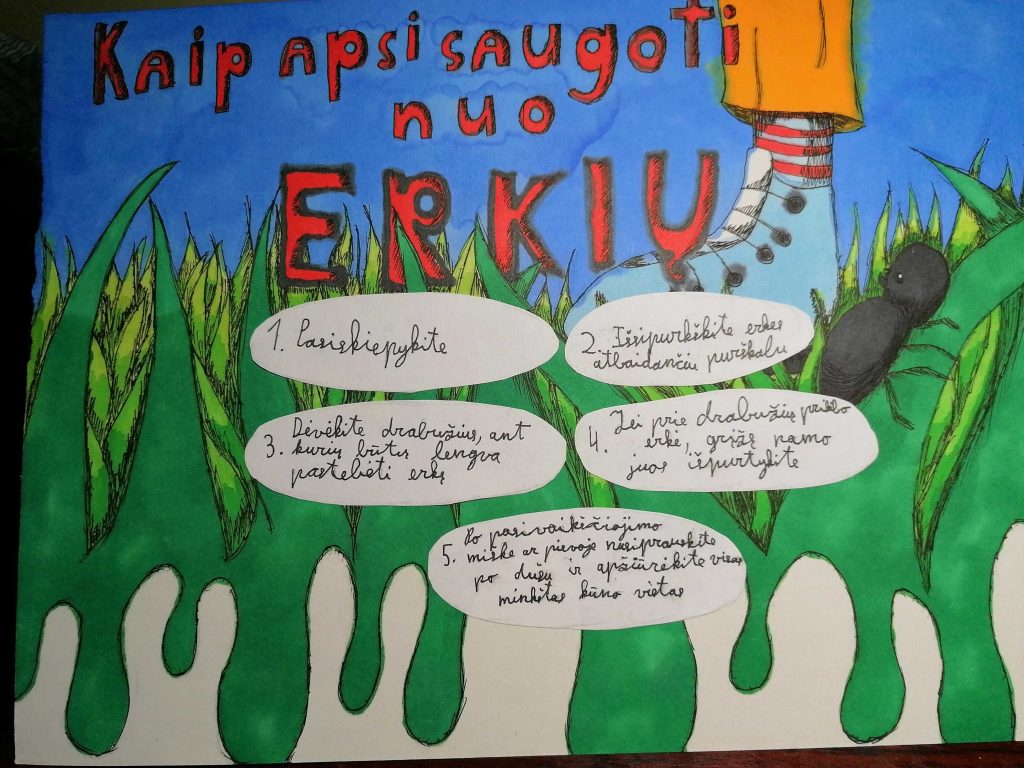 Kaip apsisaugoti
nuo
ERKIŲ
1. Pasiskiepykite
2. Išsipurkškite erkes
atbaidančiu purškalu
3. Dėvėkite drabužius, ant
kurių būtų lengva
pastebėti erkę
4. Jei prie drabužių prikibo
erkė, grįžę namo
juos išpurtykite
5. Po pasivaikščiojimo
miške ar pievoje nusiprauskite
po dušu ir apžiūrėkite visas
minkštas kūno vietas